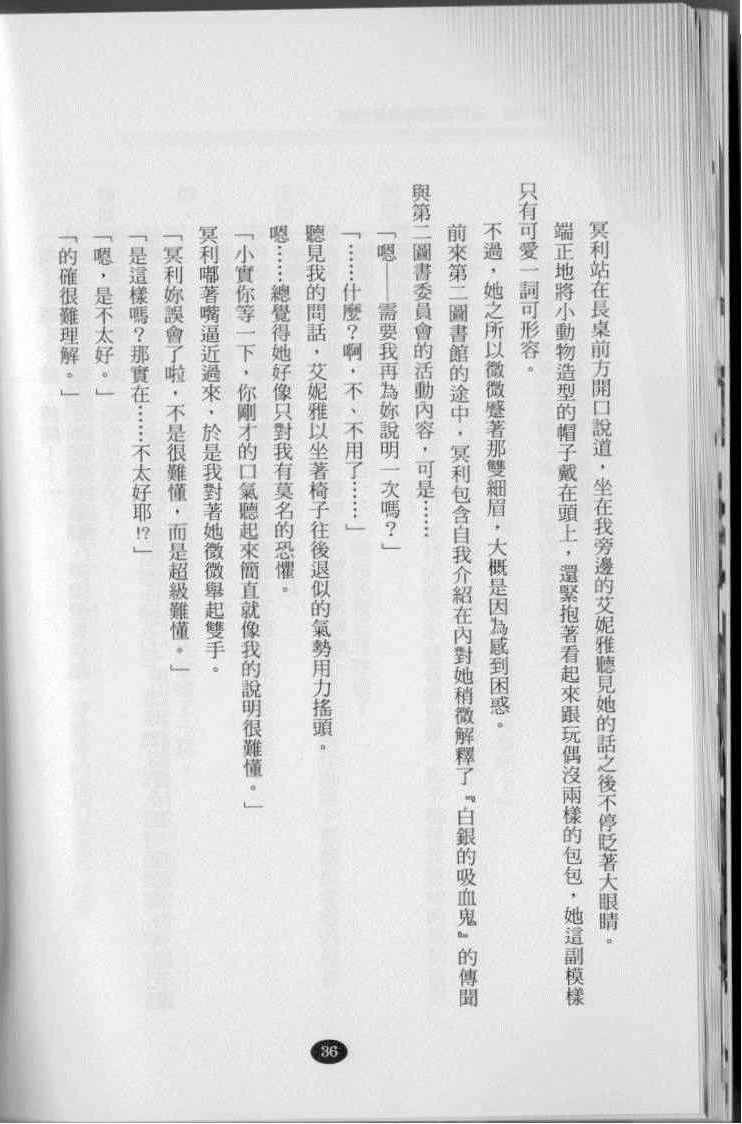 冥利站在長桌前方開口說道，坐在我旁邊的艾妮雅聽見她的話之後不停眨著大眼睛。
端正地將小動物造型的帽子戴在頭上，還緊抱著看起來跟玩偶沒兩樣的包包，她這副模樣
只有可愛一詞可形容。
不過，她之所以微微蹙著那雙細眉，大概是因為感到困惑。
前來第二圖書館的途中，冥利包含自我介紹在內對她稍微解釋了『白銀的吸血鬼』的傳聞
與第二圖書委員會的活動內容，可是……
「嗯——需要我再為妳說明一次嗎？」
「……什麼？啊，不、不用了……」
聽見我的問話，艾妮雅以坐著椅子往後退似的氣勢用力搖頭。
嗯……總覺得她好像只對我有莫名的恐懼。
「小實你等一下，你剛才的口氣聽起來簡直就像我的說明很難懂。」
冥利嘟著嘴逼近過來，於是我對著她微微舉起雙手。
「冥利妳誤會了啦，不是很難懂，而是超級難懂。」
「是這樣嗎？那實在……不太好耶!?」
「嗯，是不太好。」
「的確很難理解。」
36